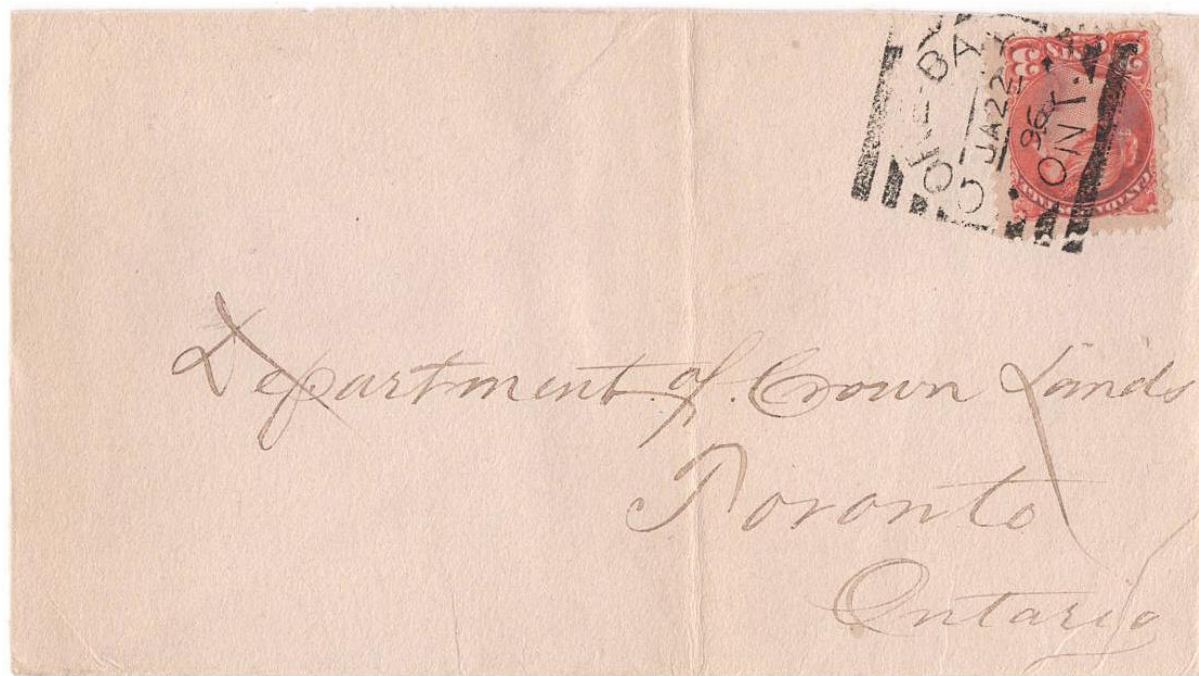 JA 22
96
ONT.
Department of Crown Lands
Toronto
Ontario